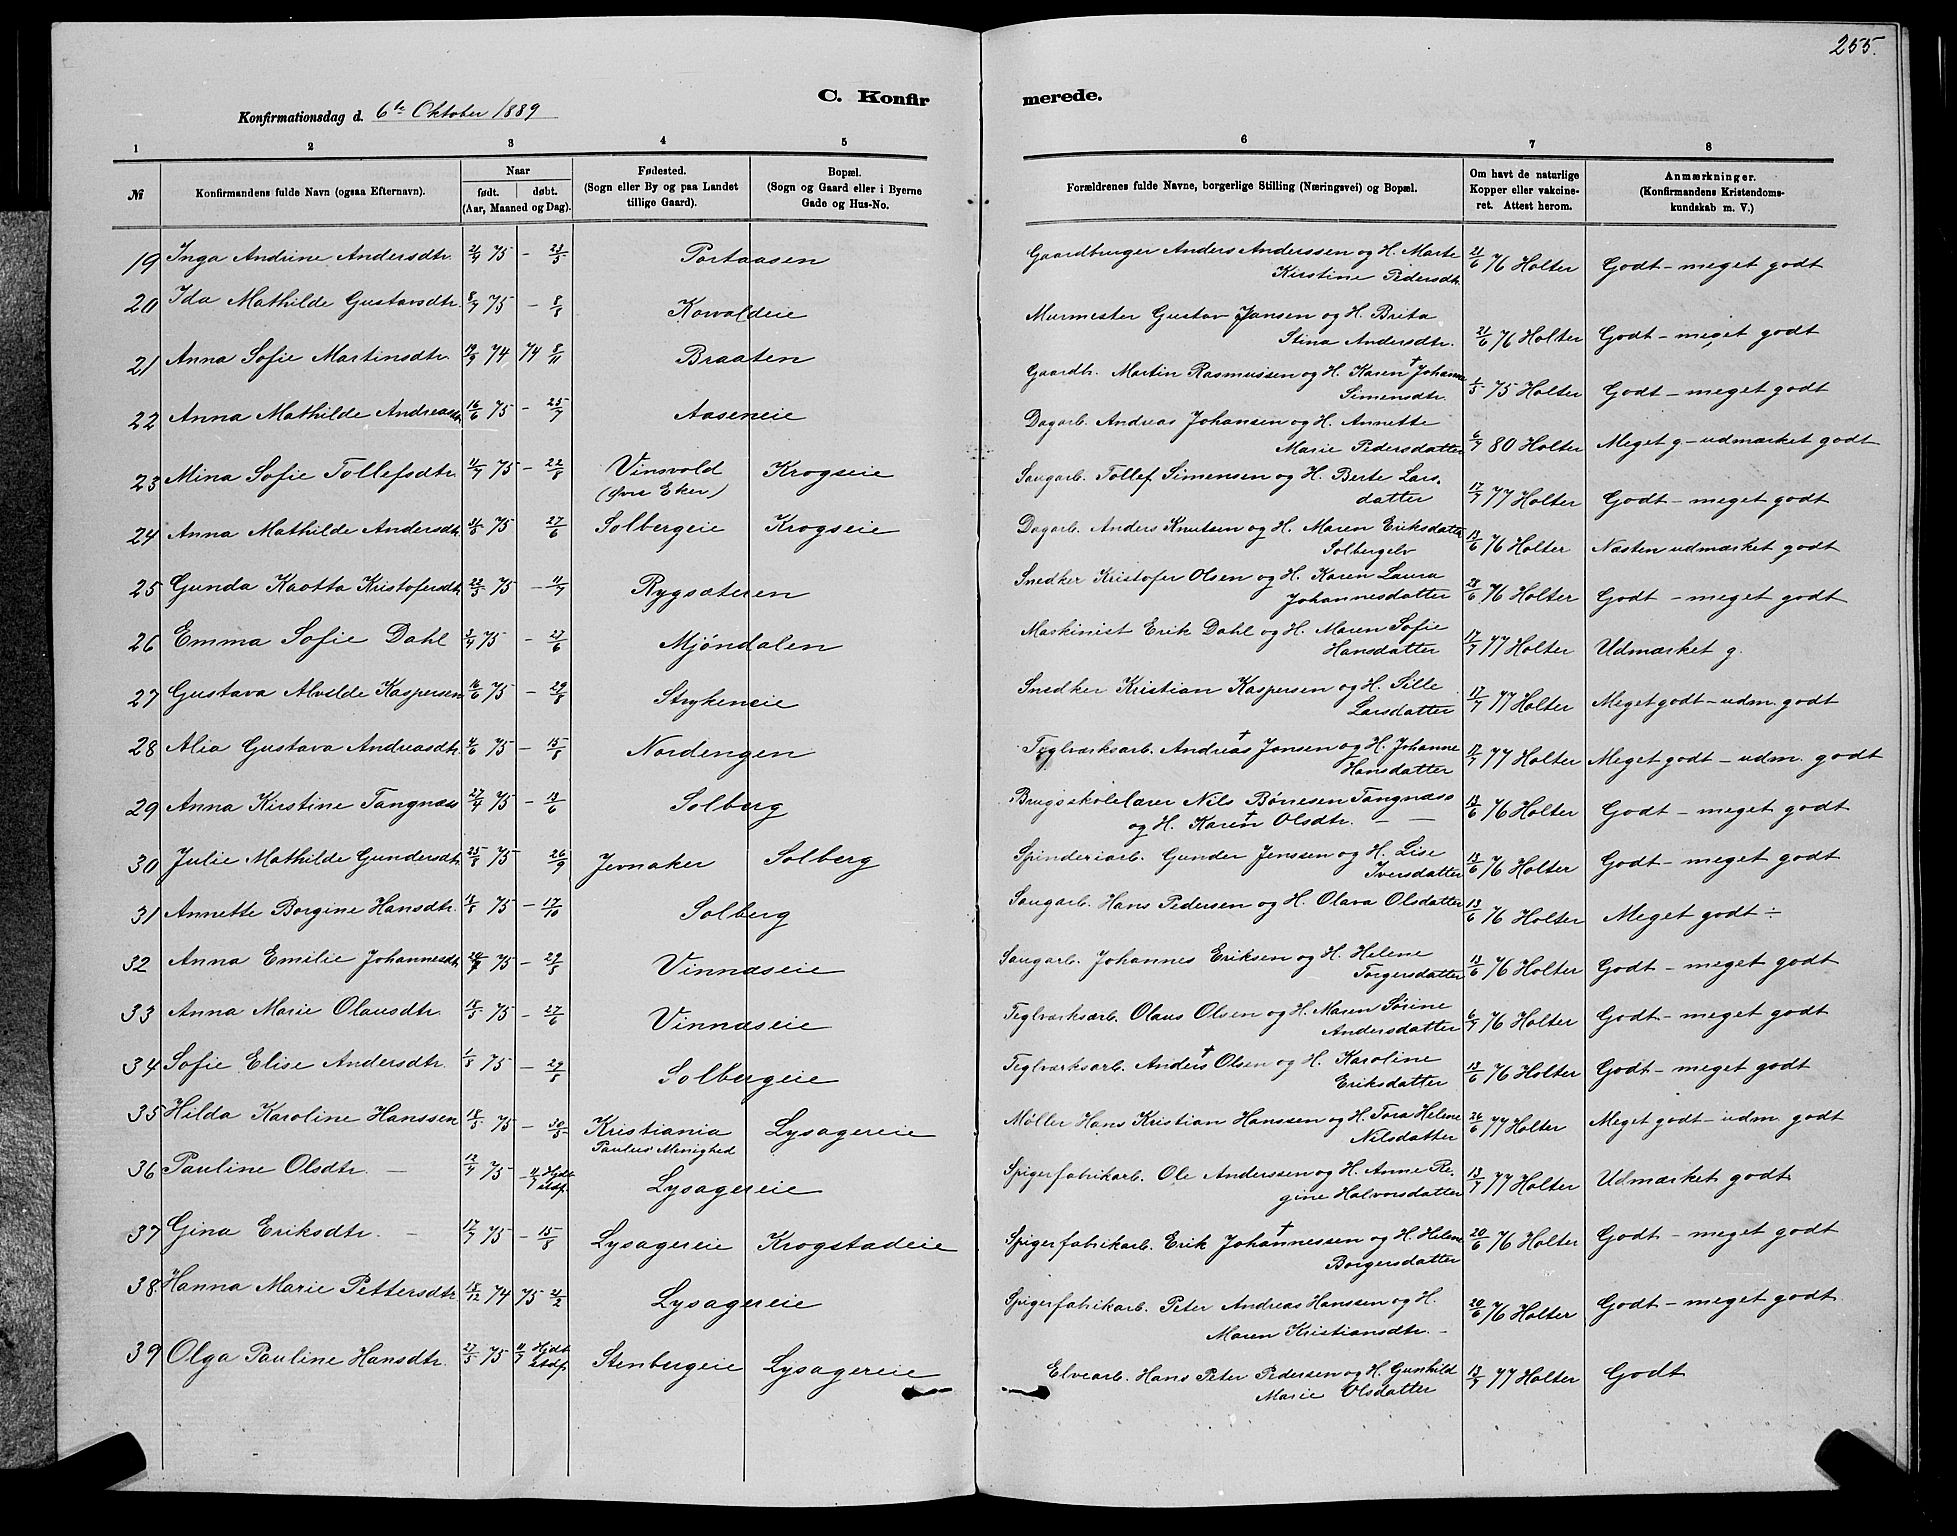 255.
C. Konfirmerede.
Konfirmationsdag d. 6te Oktober 1889
1 2 3 4 5 6 7 8
№ Konfirmandens fulde Navn (ogsaa Efternavn). Naar født. døbt. (Aar, Maaned og Dag). Fødested. (Sogn eller By og paa Landet tillige Gaard). Bopæl. (Sogn og Gaard eller i Byerne Gade og Hus-No. Forældrenes fulde Navne, borgerlige Stilling (Næringsvei) og Bopæl. Om havt de naturlige Kopper eller vakcineret. Attest herom. Anmærkninger. (Konfirmandens Kristendomskundskab m. V.)
19 Inga Andrine Andersdtr. 21/4 75 – 23/5 Portaasen Gaardbruger Anders Anderssen og H. Marte Kirstine Pedersdtr. 21/6 76 Holter Godt – meget godt
20 Ida Mathilde Gustavsdtr. 8/7 75 – 8/8 Kovaldeie Murmester Gustav Jansen og H. Brita Stina Andersdtr. 21/6 76 Holter Godt – meget godt
21 Anna Sofie Martinsdtr. 19/9 74 74 8/11 Braaten Gaardb. Martin Rasmussen og H. Karen † Johanne Simensdtr. 1/5 75 Holter Godt – meget godt
22 Anna Mathilde Andreasdtr. 16/6 75 – 25/7 Aaseneie Dagarb. Andreas Johansen og H. Annette Marie Pedersdatter 6/7 80 Holter Meget g – udmærket godt
23 Mina Sofie Tollefsdtr. 11/7 75 – 22/8 Vinsvold (Øvre Eker) Krogseie Saugarb. Tollef Simensen og H. Berte Larsdatter 17/7 77 Holter Godt – meget godt
24 Anna Mathilde Andersdtr. 31/5 75 27/6 Solbergeie Krogseie Dagarb. Anders Knutsen og H. Maren Eriksdatter Solbergelv 13/6 76 Holter Næsten udmærket godt
25 Gunda Kaotta Kristofersdtr. 22/5 75 – 11/7 Rygsæteren Snedker Kristofer Olsen og H. Karen Laura Johannesdatter 28/6 76 Holter Godt – meget godt
26 Emma Sofie Dahl 3/4 75 – 27/6 Mjöndalen Maskinist Erik Dahl og H. Maren Sofie Hansdatter 17/7 77 Holter Udmærket g.
27 Gustava Alvilde Kaspersen 16/6 75 – 29/8 Strykeneie Snedker Kristian Kaspersen og H. Sille Larsdatter 17/7 77 Holter Meget godt – udm. godt
28 Alia Gustava Andreasdtr. 4/6 75 – 15/8 Nordengen Teglværksarb. Andreas † Jansen og H. Johanne Hansdatter 17/7 77 Holter Meget godt – udm. godt
29 Anna Kirstine Tangnæss 27/4 75 – 13/6 Solberg Brugsskolelærer Nils Bönesen Tangnæss og H. Karen † Olsdtr. — — 13/6 76 Holter Godt – meget godt
30 Julie Mathilde Gundersdtr. 25/8 75 26/9 Jevnaker Solberg Spinderiarb. Gunder Jenssen og H. Lise Iversdatter 13/6 76 Holter Godt – meget godt
31 Annette Borgine Hansdtr. 18/8 75 – 17/10 Solberg Saugarb. Hans Pedersen og H. Olava Olsdatter 13/6 76 Holter Meget godt ÷
32 Anna Emilie Johannesdtr. 20/7 75 – 29/8 Vinnæseie Saugarb. Johannes Eriksen og H. Helene Torgersdatter 13/6 76 Holter Godt – meget godt
33 Anna Marie Olausdtr. 18/5 75 – 27/6 Vinnæseie Teglværksarb. Olaus Olsen og H. Maren Sørine Andersdatter 6/7 76 Holter Godt – meget godt
34 Sofie Elise Andersdtr. 1/8 75 – 29/8 Solbergeie Teglværksarb. Anders † Olsen og H. Karoline Eriksdatter 13/6 76 Holter Godt – meget godt
35 Hilda Karoline Hanssen 18/5 75 – 30/5 Kristiania Paulus Menighed Lysagereie Møller Hans Kristian Hanssen og H. Tora Helene Nilsdatter 26/6 77 Holter Meget godt – udm. godt
36 Pauline Olsdtr. — 12/4 75 – 11/7 Hjdt. stdf. Lysagereie Spigerfabrikarb. Ole Anderssen og H. Anne Regine Halvorsdatter 13/7 77 Holter Udmærket godt
37 Gina Eriksdtr. — 17/7 75 – 15/8 Lysagereie Krogstadeie Spigerfabrikarb. Erik Johannessen † og H. Helene Borgersdatter 20/6 76 Holter Godt – meget godt
38. Hanna Marie Pettersdtr 18/12 74 75 21/2 Lysagereie Spigerfabrikarb. Peter Andreas Hanssen og H. Maren Kristiansdtr. — 20/6 76 Holter Godt – meget godt
39 Olga Pauline Hansdtr. 27/5 75 11/7 Hjdt. stdf. Stenbergeie Lysagereie Elvearb. Hans Peter Pedersen og H. Gunhild Marie Olsdatter 13/7 77 Holter Godt